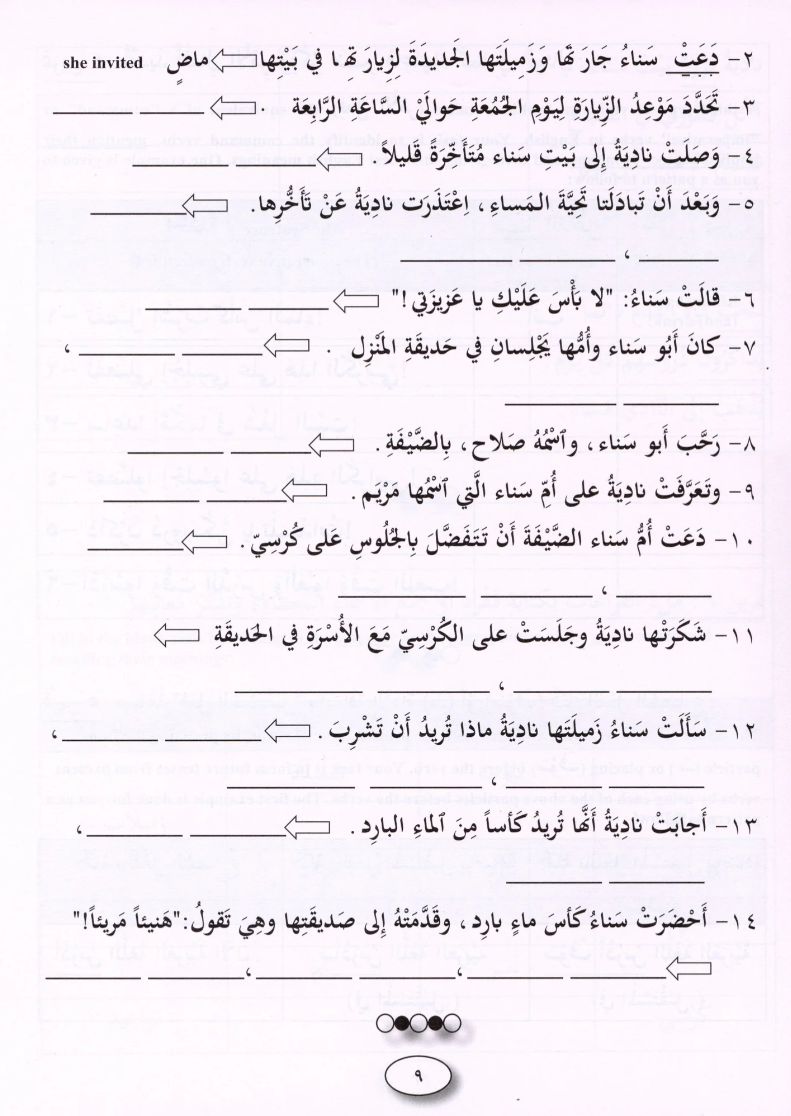 ٢- دَعَتْ سَناءُ جارَتَها وَزَميلَتَها الجَديدَةَ لِزيارَتِها في بَيْتِها ماضٍ she invited
٣- تَحَدَّدَ مَوْعِدُ الزِّيارَةِ لِيَوْمِ الجُمُعَةِ حَوالَيْ السَّاعَةِ الرَّابِعَةِ .
٤- وَصَلَتْ نادِيَةُ إِلى بَيْتِ سَناء مُتَأَخِّرَةً قَليلاً.
٥- وَبَعْدَ أَنْ تَبادَلَتا تَحِيَّةَ المَساءِ، اِعْتَذَرَت نادِيَةُ عَنْ تَأَخُّرِها.
،
٦- قالَتْ سَناءُ: "لا بَأْسَ عَلَيْكِ يا عَزيزَتي!"
٧- كانَ أَبُو سَناء وأُمُّها يَجْلِسانِ في حَديقَةِ المَنْزِل . ،
٨- رَحَّبَ أَبو سَناء، وٱسْمُهُ صَلاح، بِالضَّيْفَةِ.
٩- وتَعَرَّفَتْ نادِيَةُ على أُمِّ سَناء الَّتي ٱسْمُها مَرْيَم.
١٠- دَعَتْ أُمُّ سَناء الضَّيْفَةَ أَنْ تَتَفَضَّلَ بِالجُلُوسِ عَلى كُرْسِيّ.
،
١١- شَكَرَتْها نادِيَةُ وجَلَسَتْ على الكُرْسِيّ مَعَ الأُسْرَةِ في الحَديقَةِ
،
١٢- سَأَلَت سَناءُ زَميلَتَها نادِيَةُ ماذا تُريدُ أَنْ تَشْرِبَ. ،
،
١٣- أَجابَتْ نادِيَةُ أَنَّها تُريدُ كَأساً مِنَ الماءِ البارِد. ،
١٤- أَحْضَرَتْ سَناءُ كَأسَ ماءٍ بارِد، وقَدَّمَتْهُ إِلى صَديقَتِها وهِيَ تَقولُ:"هَنيئاً مَريئاً!"
، ، ،
٩